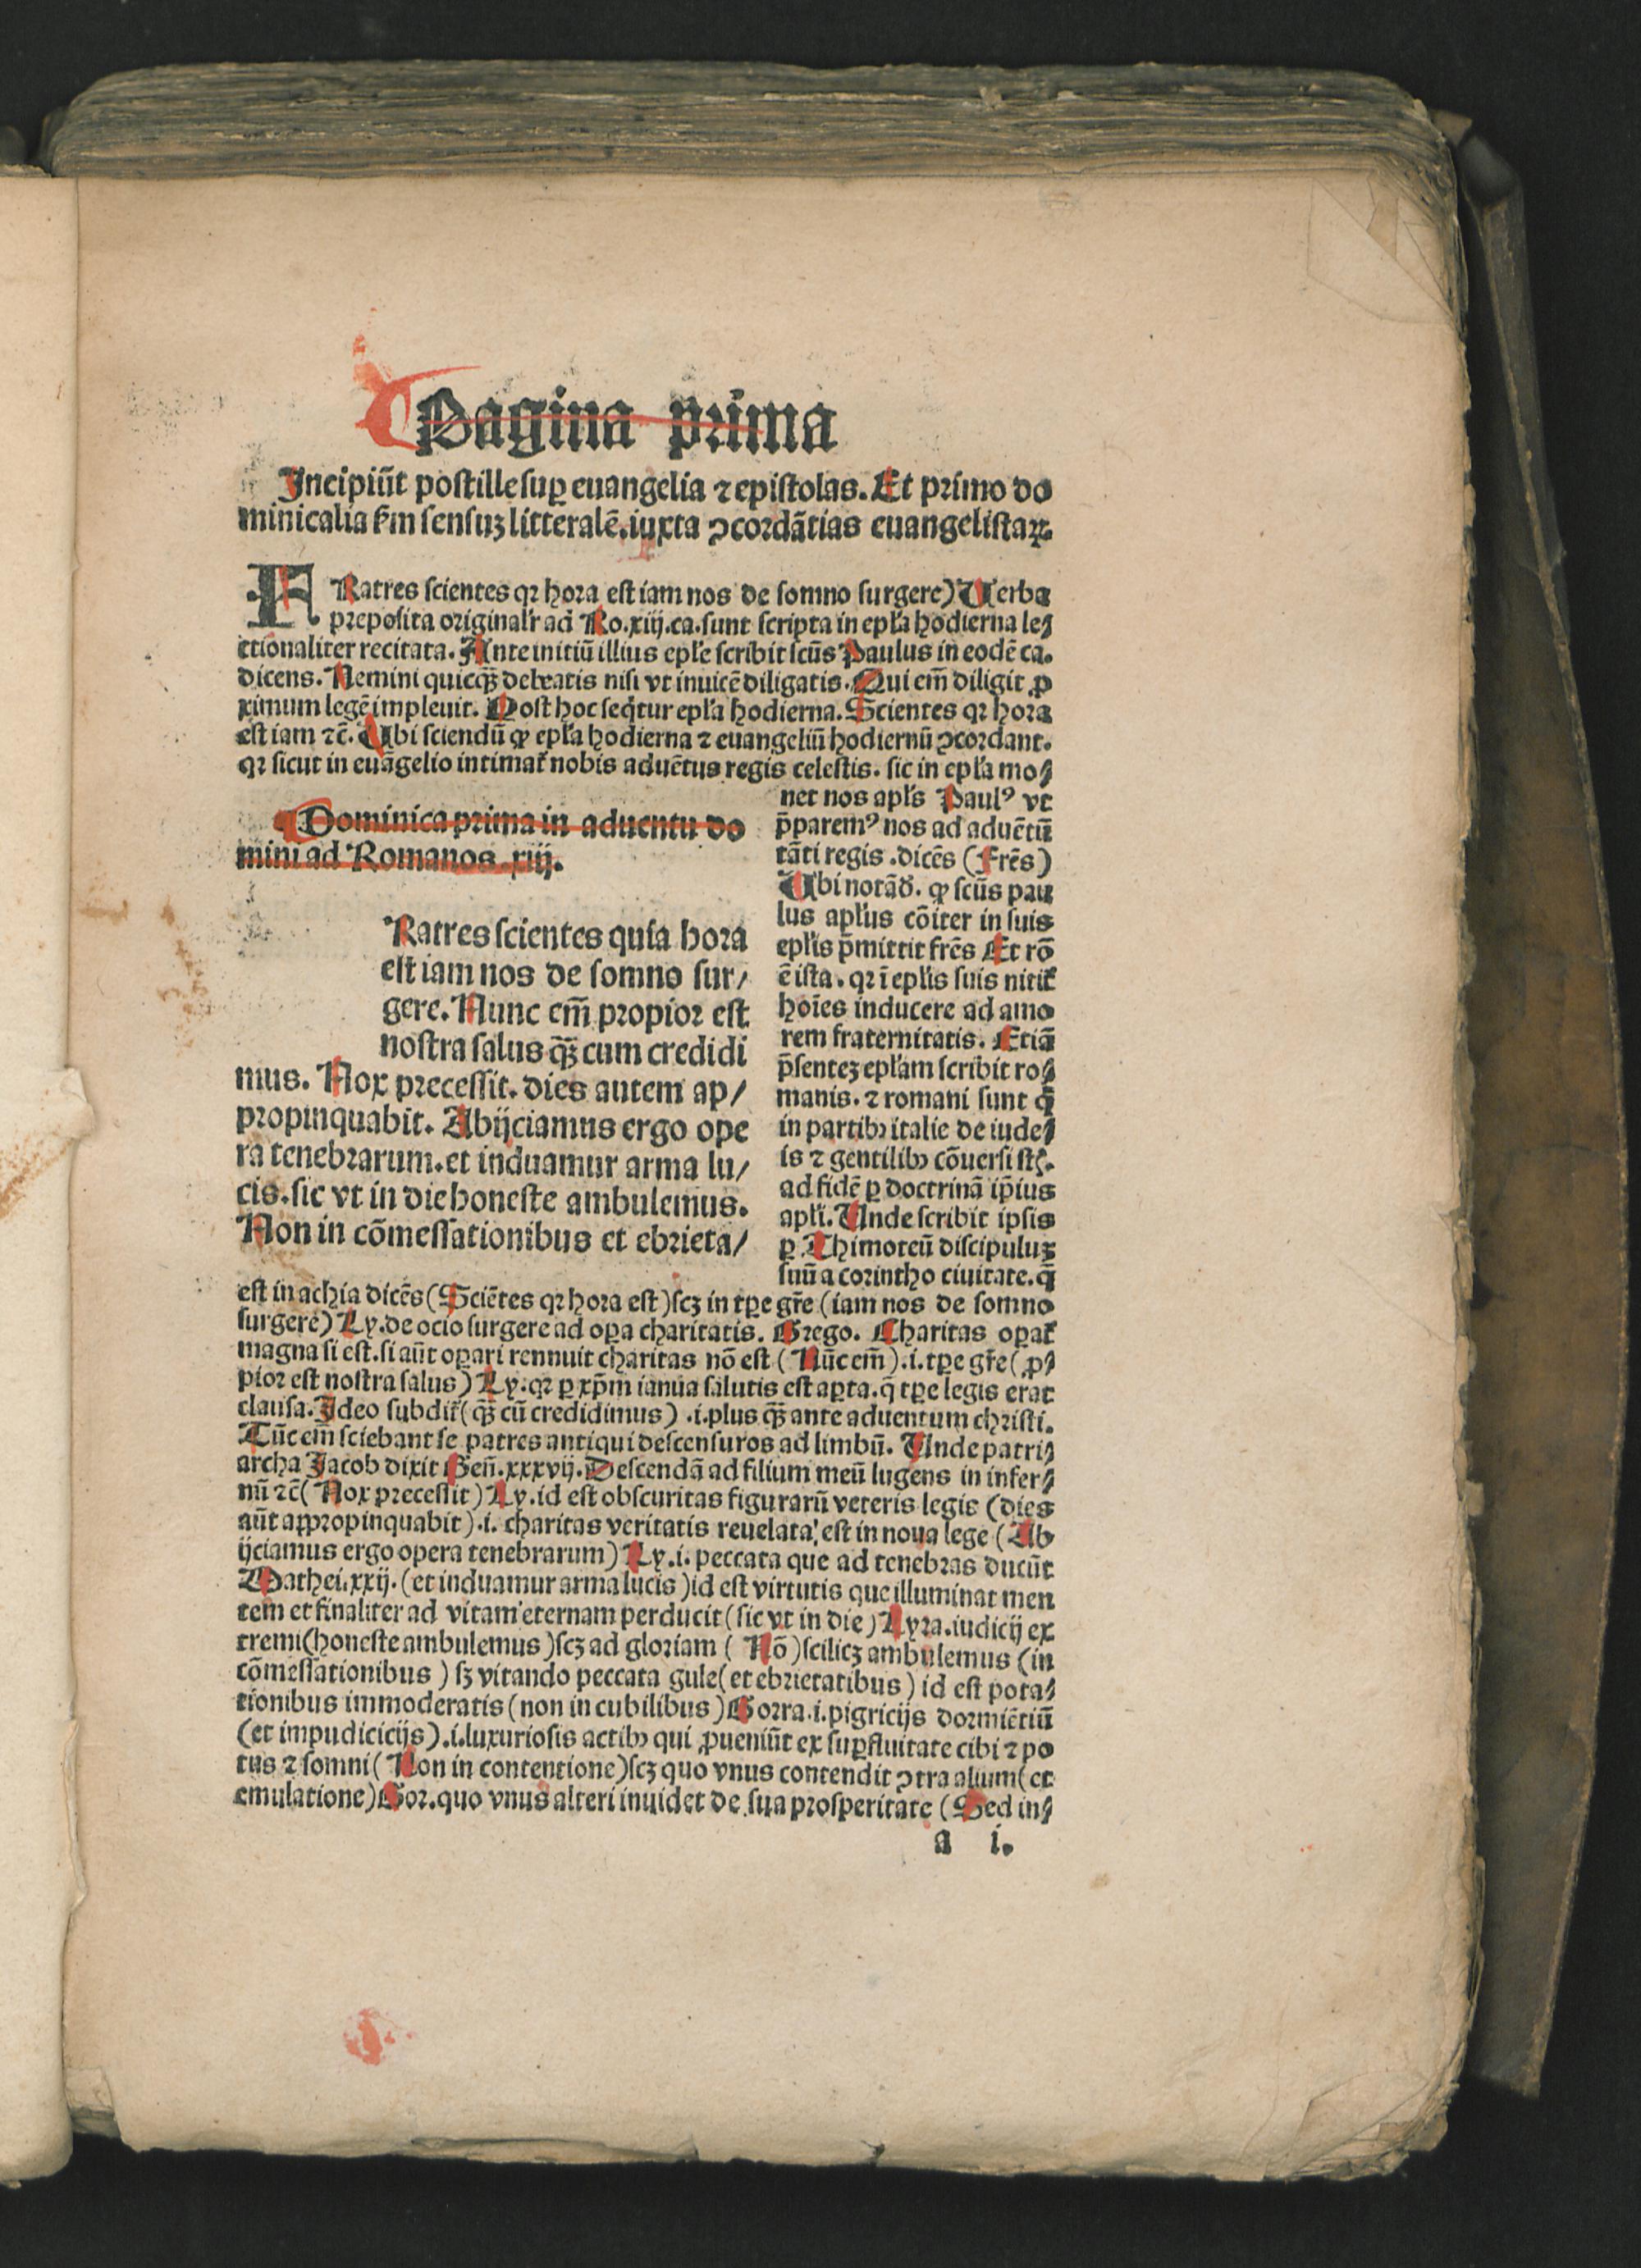 Pagina prima
Incipiūt postille suꝑ euangelia ⁊ epistolas. Et primo do
minicalia ẜm sensuʒ litteralē. iuxta ↄcordātias euangelistaꝝ.
FRatres scientes qꝛ hora est iam nos de somno surgere) Uerba
preposita originalr̄ ad Ro. xiij. ca. sunt scripta in epl̄a hodierna le⸗
ctionaliter recitata. Ante initiū illius epl̄e scribit scūs Paulus in eodē ca.
dicens. Nemini quicq̄ʒ debeatis nisi vt inuicē diligatis. Qui em̄ diligit ꝓ
ximum legē impleuit. Post hoc seq̄tur epl̄a hodierna. Scientes qꝛ hora
est iam ⁊c̄. Ubi sciendū ꝙ epl̄a hodierna ⁊ euangeliū hodiernū ↄcordant.
qꝛ sicut in euāgelio intimat̄ nobis aduētus regis celestis. sic in epl̄a mo⸗
net nos apl̄s Paulꝰ vt
p̄paremꝰ nos ad aduētū
tāti regis. dicēs (Frēs)
Ubi notād̄. ꝙ scūs pau
lus apl̄us cōiter in suis
epl̄is p̄mittit frēs Et rō
ē ista. qꝛ ī epl̄is suis nitit̄
hoīes inducere ad amo
rem fraternitatis. Etiā
p̄senteʒ epl̄am scribit ro⸗
manis. ⁊ romani sunt q̄
in partibꝰ italie de iude⸗
is ⁊ gentilibꝰ cōuersi st̄.
ad fidē ꝑ doctrinā ip̄ius
apl̄i. Unde scribit ipsis
ꝑ Thimoteū discipuluʒ
suū a corintho ciuitate. q̄
Dominica prima in aduentu do
mini ad Romanos. xiij.
Ratres scientes quia hora
est iam nos de somno sur/
gere. Nunc em̄ propior est
nostra salus q̄ʒ cum credidi
mus. Nox precessit. dies autem ap/
propinquabit. Abijciamus ergo ope
ra tenebrarum. et induamur arma lu/
cis. sic vt in die honeste ambulemus.
Non in cōmessationibus et ebrieta/
est in achia dicēs (Sciētes qꝛ hora est) scʒ in tꝑe gr̄e (iam nos de somno
surgere) Ly. de ocio surgere ad oꝑa charitatis. Grego. Charitas oꝑat̄
magna si est. si aūt oꝑari rennuit charitas nō est (Nūc em̄) .i. tꝑe gr̄e (ꝓ⸗
pior est nostra salus) Ly. qꝛ ꝑ xp̄m ianua salutis est aꝑta. q̄ tꝑe legis erat
clausa. Ideo subdit̄ (q̄ʒ cū credidimus) .i. plus q̄ʒ ante aduentum christi.
Tūc em̄ sciebant se patres antiqui descensuros ad limbū. Unde patri⸗
archa Jacob dixit Gen̄. xxxvij. Descendā ad filium meū lugens in infer⸗
nū ⁊c̄ (Nox precessit) Ly. id est obscuritas figurarū veteris legis (dies
aūt appropinquabit) .i. charitas veritatis reuelata est in noua lege (Ab
ijciamus ergo opera tenebrarum) Ly. i. peccata que ad tenebras ducūt
Mathei. xxij. (et induamur arma lucis) id est virtutis que illuminat men
tem et finaliter ad vitam eternam perducit (sic vt in die) Lyra. iudicij ex
tremi (honeste ambulemus) scʒ ad gloriam (Nō) scilicʒ ambulemus (in
cōmessationibus) sʒ vitando peccata gule (et ebrietatibus) id est pota⸗
tionibus immoderatis (non in cubilibus) Gorra. i. pigricijs dormiētiū
(et impudicicijs) .i. luxuriosis actibꝰ qui ꝓueniūt ex suꝑfluitate cibi ⁊ po
tus ⁊ somni (Non in contentione) scʒ quo vnus contendit ↄtra alium (et
emulatione) Gor. quo vnus alteri inuidet de sua prosperitate (Sed in⸗
a i.